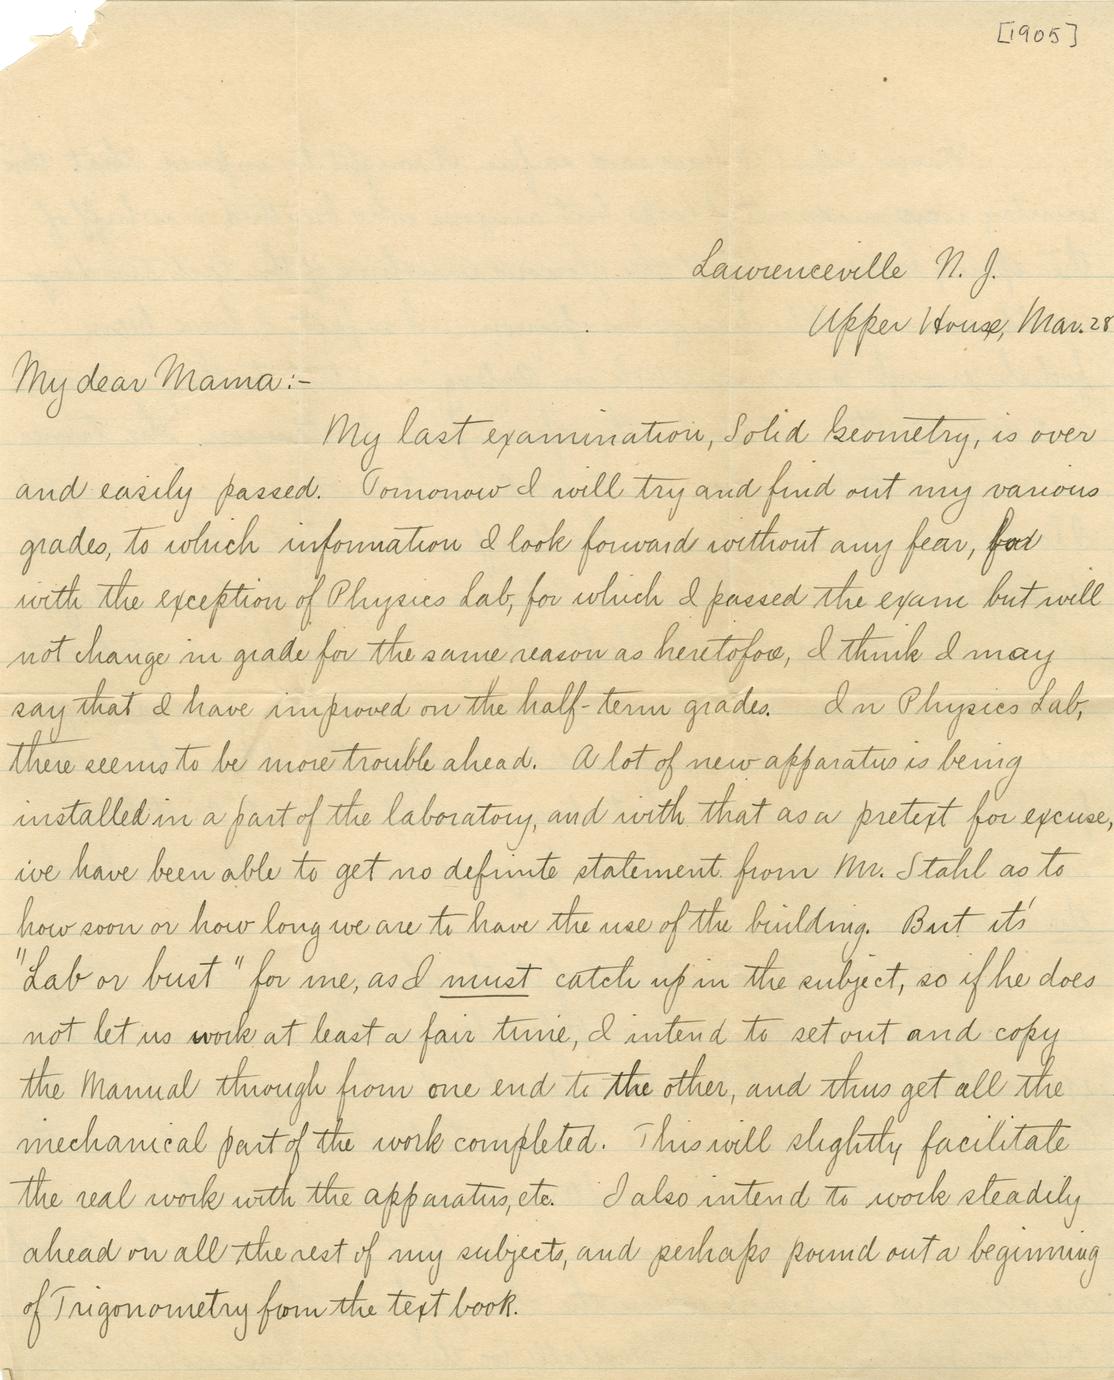 [1905]
Lawrenceville N. J.
Upper House, Mar. 28
My dear Mama:-
My last examination, Solid Geometry, is over
and easily passed. Tomorrow I will try and find out my various
grades, to which information I look forward without any fear, for
with the exception of Physics Lab, for which I passed the exam but will
not change in grade for the same reason as heretofore, I think I may
say that I have improved on the half-term grades. In Physics Lab,
there seems to be more trouble ahead. A lot of new apparatus is being
installed in a part of the laboratory, and with that as a pretext for excuse,
we have been able to get no definite statement from Mr. Stahl as to
how soon or how long we are to have the use of the building. But its'
"Lab or bust" for me, as I must catch up in the subject, so if he does
not let us work at least a fair time, I intend to set out and copy
the Manual through from one end to the other, and thus get all the
mechanical part of the work completed. This will slightly facilitate
the real work with the apparatus, etc. I also intend to work steadily
ahead on all the rest of my subjects, and perhaps pound out a beginning
of Trigonometry from the text book.